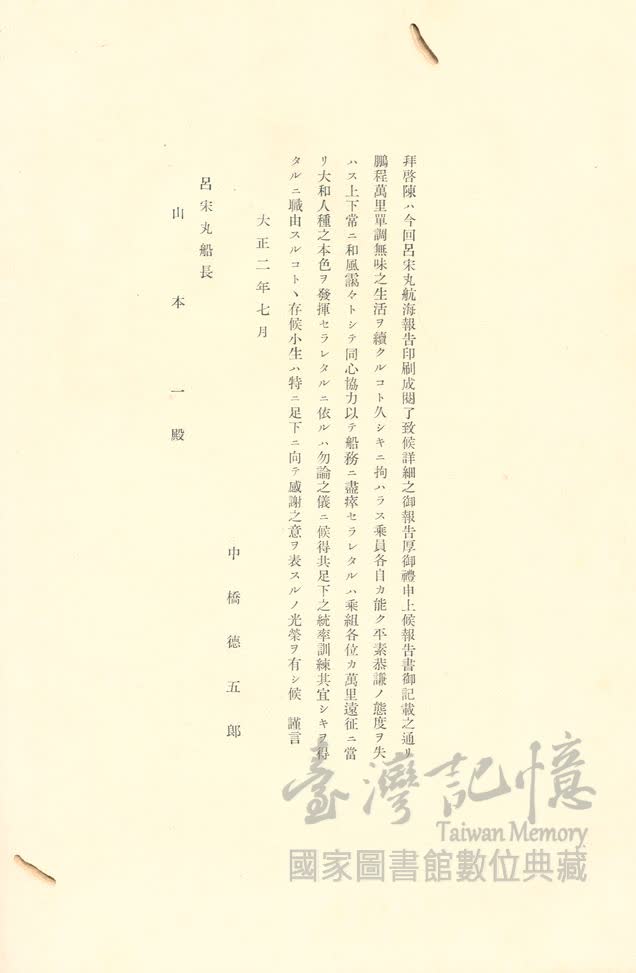 拜啓陳ハ今回呂宋丸航海報告印刷成閱了致候詳細之御報告厚御禮申上候報告書御記載之通リ
鵬程萬里單調無味之生活ヲ續クルコト久シキニ拘ハラス乘員各自カ能ク平素恭謙ノ態度ヲ失
ハス上下常ニ和風靄々トシテ同心協力以テ船務ニ盡瘁セラレタルハ乘組各位カ萬里遠征ニ當
リ大和人種之本色ヲ發揮セラレタルニ依ルハ勿論之儀ニ候得共足下之統率訓練其宜シキヲ得
タルニ職由スルコトヽ存候小生ハ特ニ足下ニ向テ感謝之意ヲ表スルノ光榮ヲ有シ候 謹言
大正二年七月
中橋德五郎
呂宋丸船長
山本一殿
臺灣記憶
Taiwan Memory
國家圖書館數位典藏